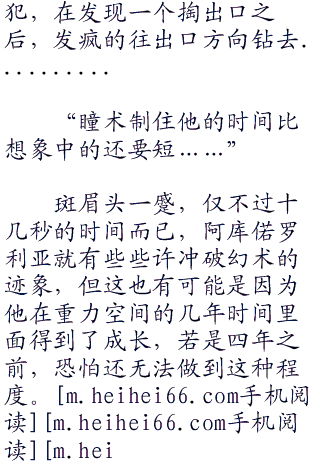 犯，在发现一个掏出口之
后，发疯的往出口方向钻去.
.........
“瞳术制住他的时间比
想象中的还要短……”
斑眉头一蹙，仅不过十
几秒的时间而已，阿库偌罗
利亚就有些些许冲破幻术的
迹象，但这也有可能是因为
他在重力空间的几年时间里
面得到了成长，若是四年之
前，恐怕还无法做到这种程
度。[m.heihei66.com手机阅
读][m.heihei66.com手机阅
读][m.hei